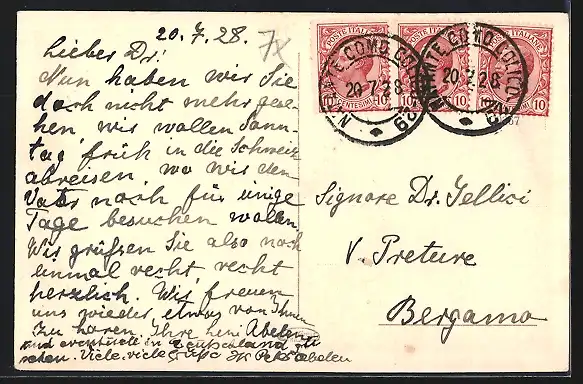 20.7.28.
Lieber Dr!
Nun haben wir Sie
doch nicht mehr gese-
hen, wir wollen Sonn-
tag früh in die Schweiz
abreisen, wo wir den
Vater noch für einige
Tage besuchen wollen.
Wir grüßen Sie also noch
einmal recht recht
herzlich. Wir freuen
uns wieder etwas von Ihnen
zu hören. Ihre
und eventuell in Deutschland zu
sehen. Viele, viele Grüße
POSTE ITALIANE POSTE ITALIANE POSTE ITALIANE
CENTESIMI 10 10 10
COMO 20.7.28
COMO 20.7.28
Signore Dr. Jellici
V. Preture
Bergamo